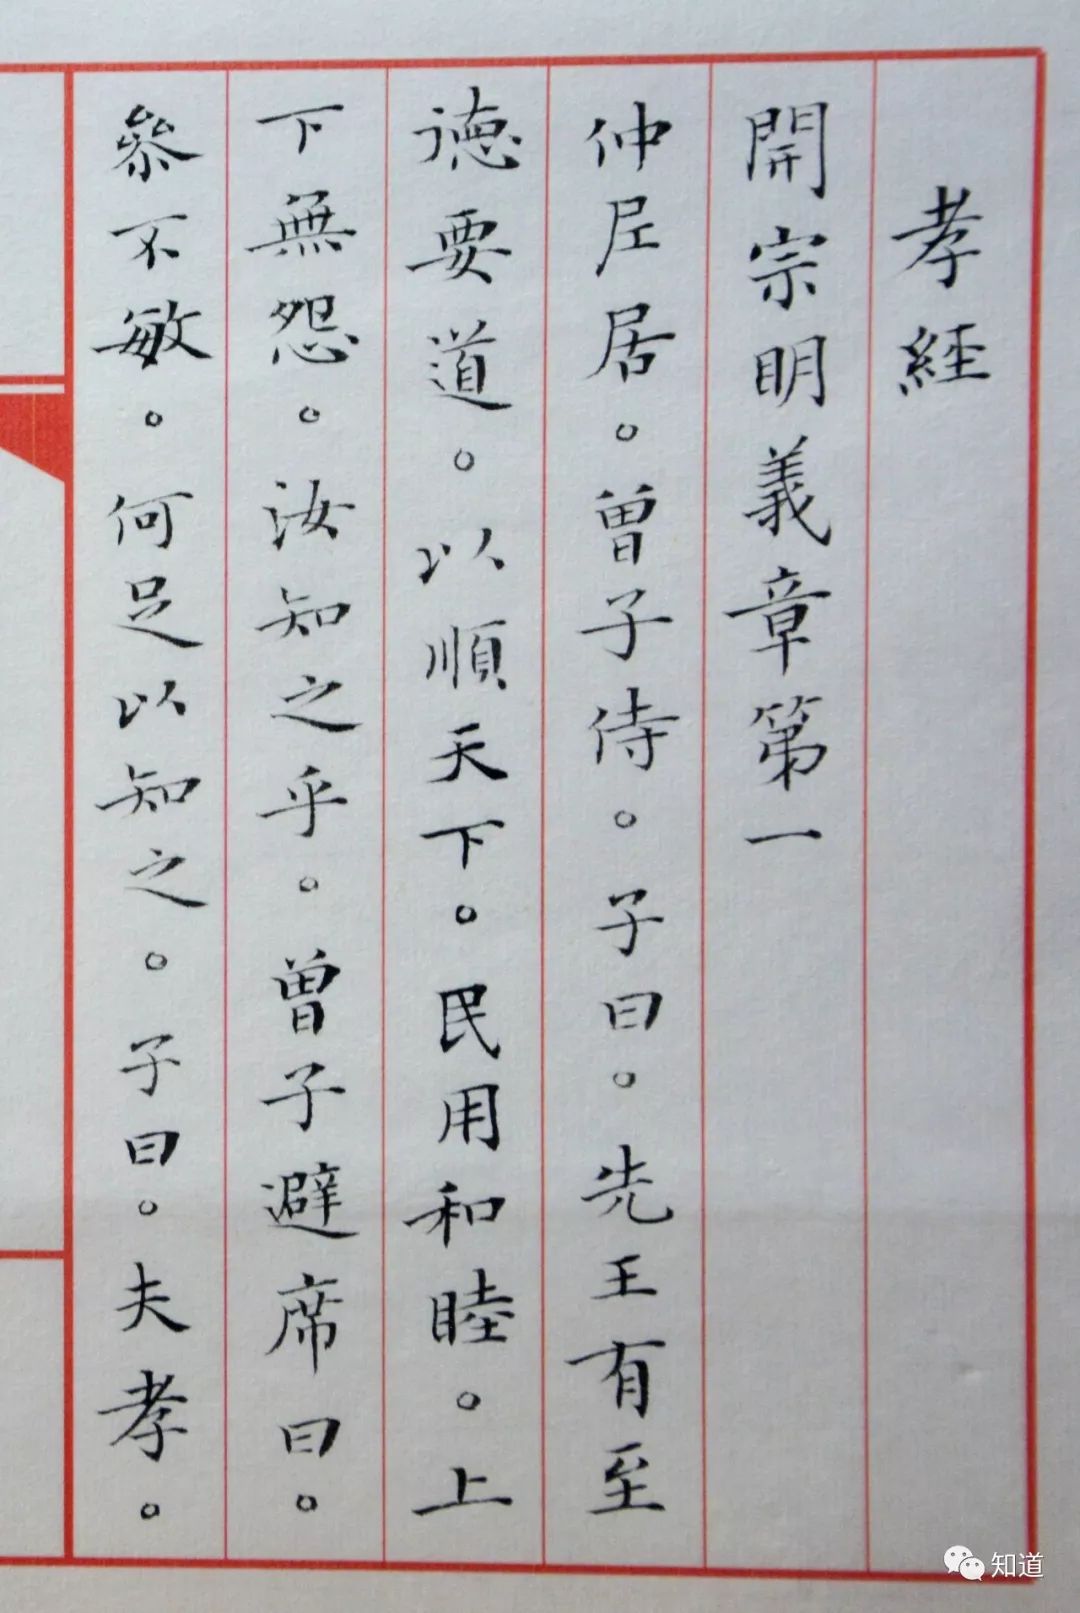 孝經
開宗明義章第一
仲尼居。曾子侍。子曰。先王有至
德要道。以順天下。民用和睦。上
下無怨。汝知之乎。曾子避席曰。
參不敏。何足以知之。子曰。夫孝。
知道